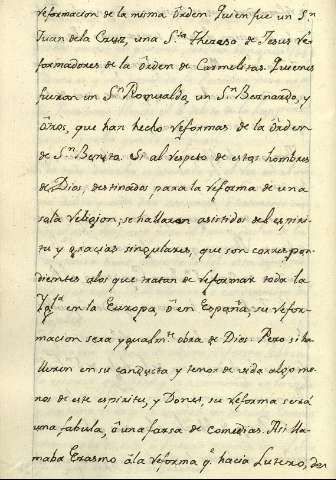 reformacion de la misma Orden. Quien fue un Sn
Juan de la Cruz, una Sta Theresa de Jesus re-
formadores de la Orden de Carmelitas. Quienes
fueron un Sn Romualdo, un Sn Bernardo, y
otros, que han hecho reformas de la Orden
de Sn Benito. Si al respeto de estos hombres
de Dios, destinados para la reforma de una
sola religion, se hallaron asistidos del espiri-
tu y gracias singulares, que son correspon-
dientes alos que tratan de reformar toda la
Ygla en la Europa, ò en España, su refor-
macion sera ygualmte obra de Dios. Pero si ha-
lleren en su conducta y tenor de vida algo me-
nos de este espiritu, y Dones, su reforma será
una fabula, ò una farsa de comedias. Asi lla-
maba Erasmo á la reforma qe hacia Lutero, des